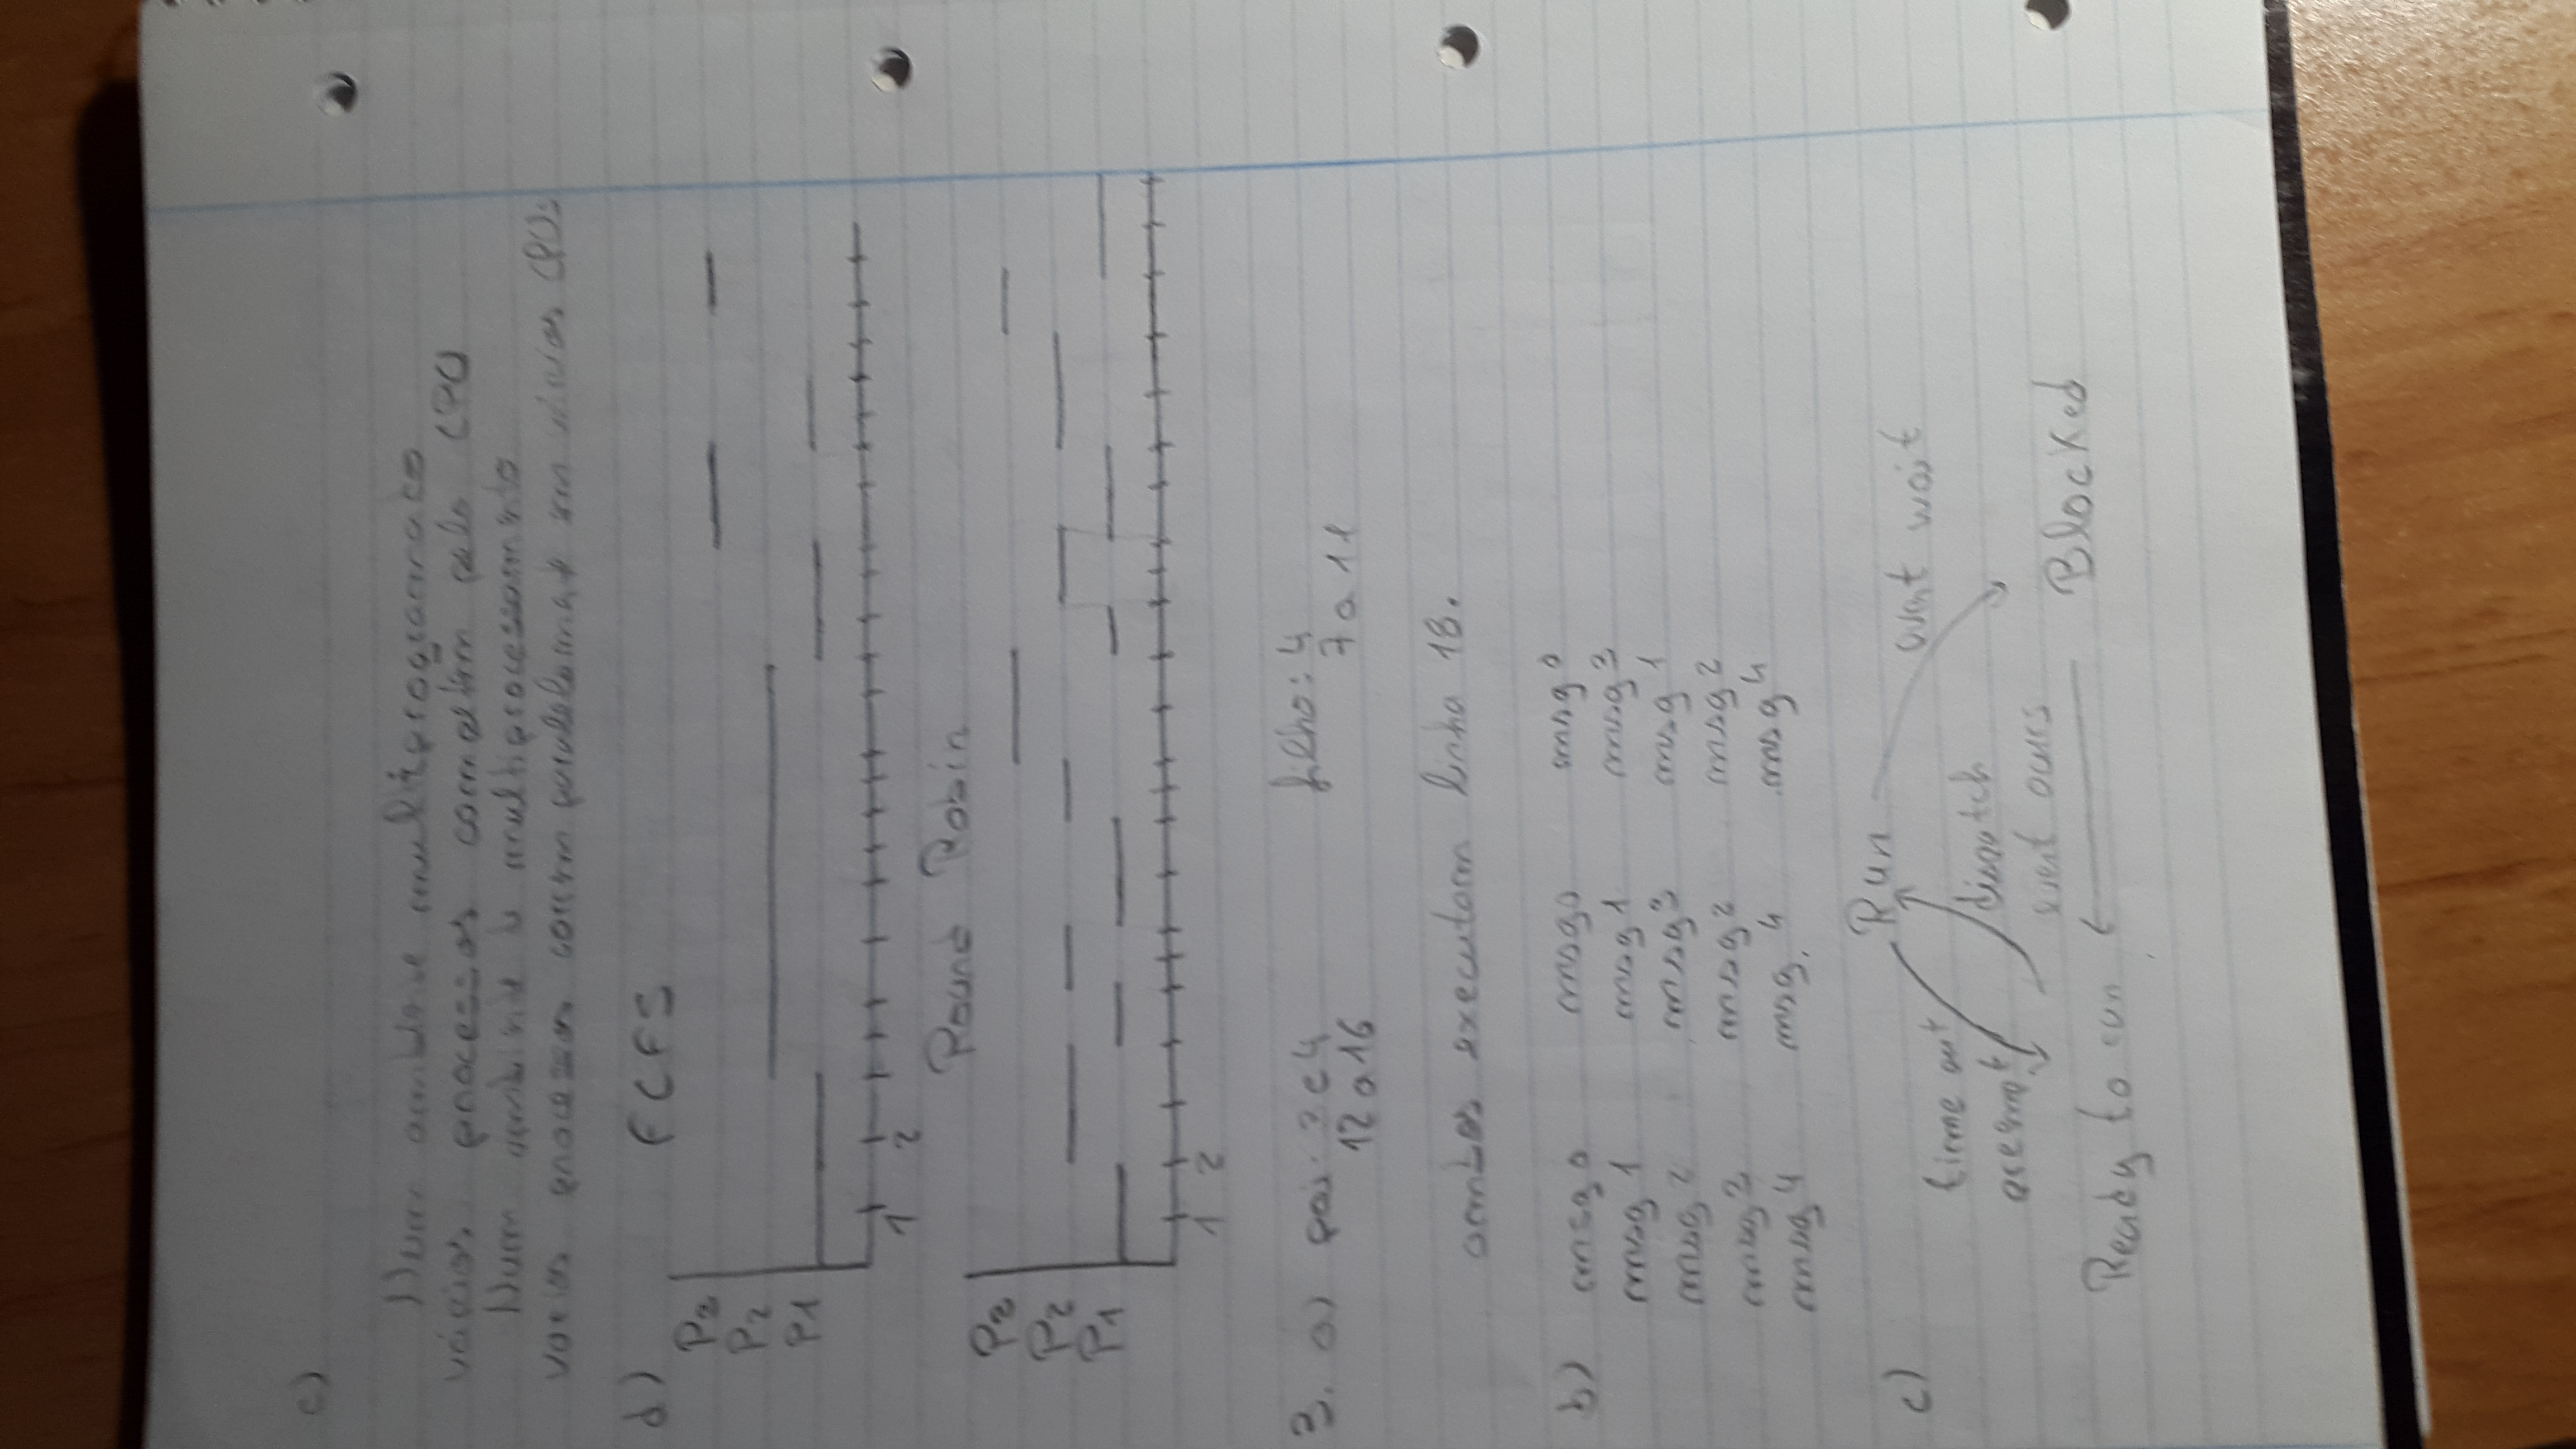 c)
Num ambiente multiprogramado
vários processos competem pelo CPU
Num ambiente de multiprocessamento
varios processos correm em vários CPUs
d) FCFS
P3
P2
P1
1 2
Round Robin
P3
P2
P1
1 2
3. a) pai: 3 e 4 filho: 4
12 a 16 7 a 11
ambos executam linha 18.
b) msg 0 msg 0 msg 0
msg 1 msg 1 msg 3
msg 2 msg 3 msg 1
msg 3 msg 2 msg 2
msg 4 msg 4 msg 4
c) Run
time out event wait
preempt dispatch
event ocurs
Ready to run Blocked